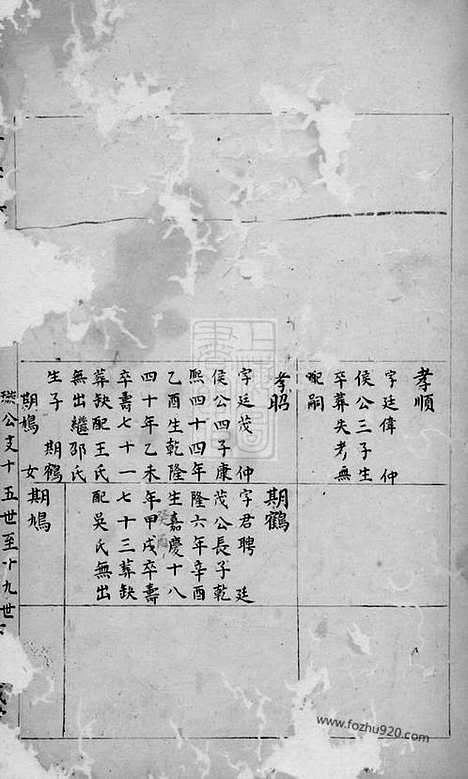 孝順
字廷偉 仲
侯公三子生
卒葬失考無
配嗣
孝昭
字廷茂 仲
侯公四子康
熙四十四年
乙酉生乾隆
四十年乙未
卒壽七十一
葬缺配王氏
無出繼邵氏
生子 期鶴
期鳩 女
期鶴
字君聘 廷
茂公長子乾
隆六年辛酉
生嘉慶十八
年甲戌卒壽
七十三葬缺
配吳氏無出
期鳩
公支十五世至十九世
www.fozhu920.com